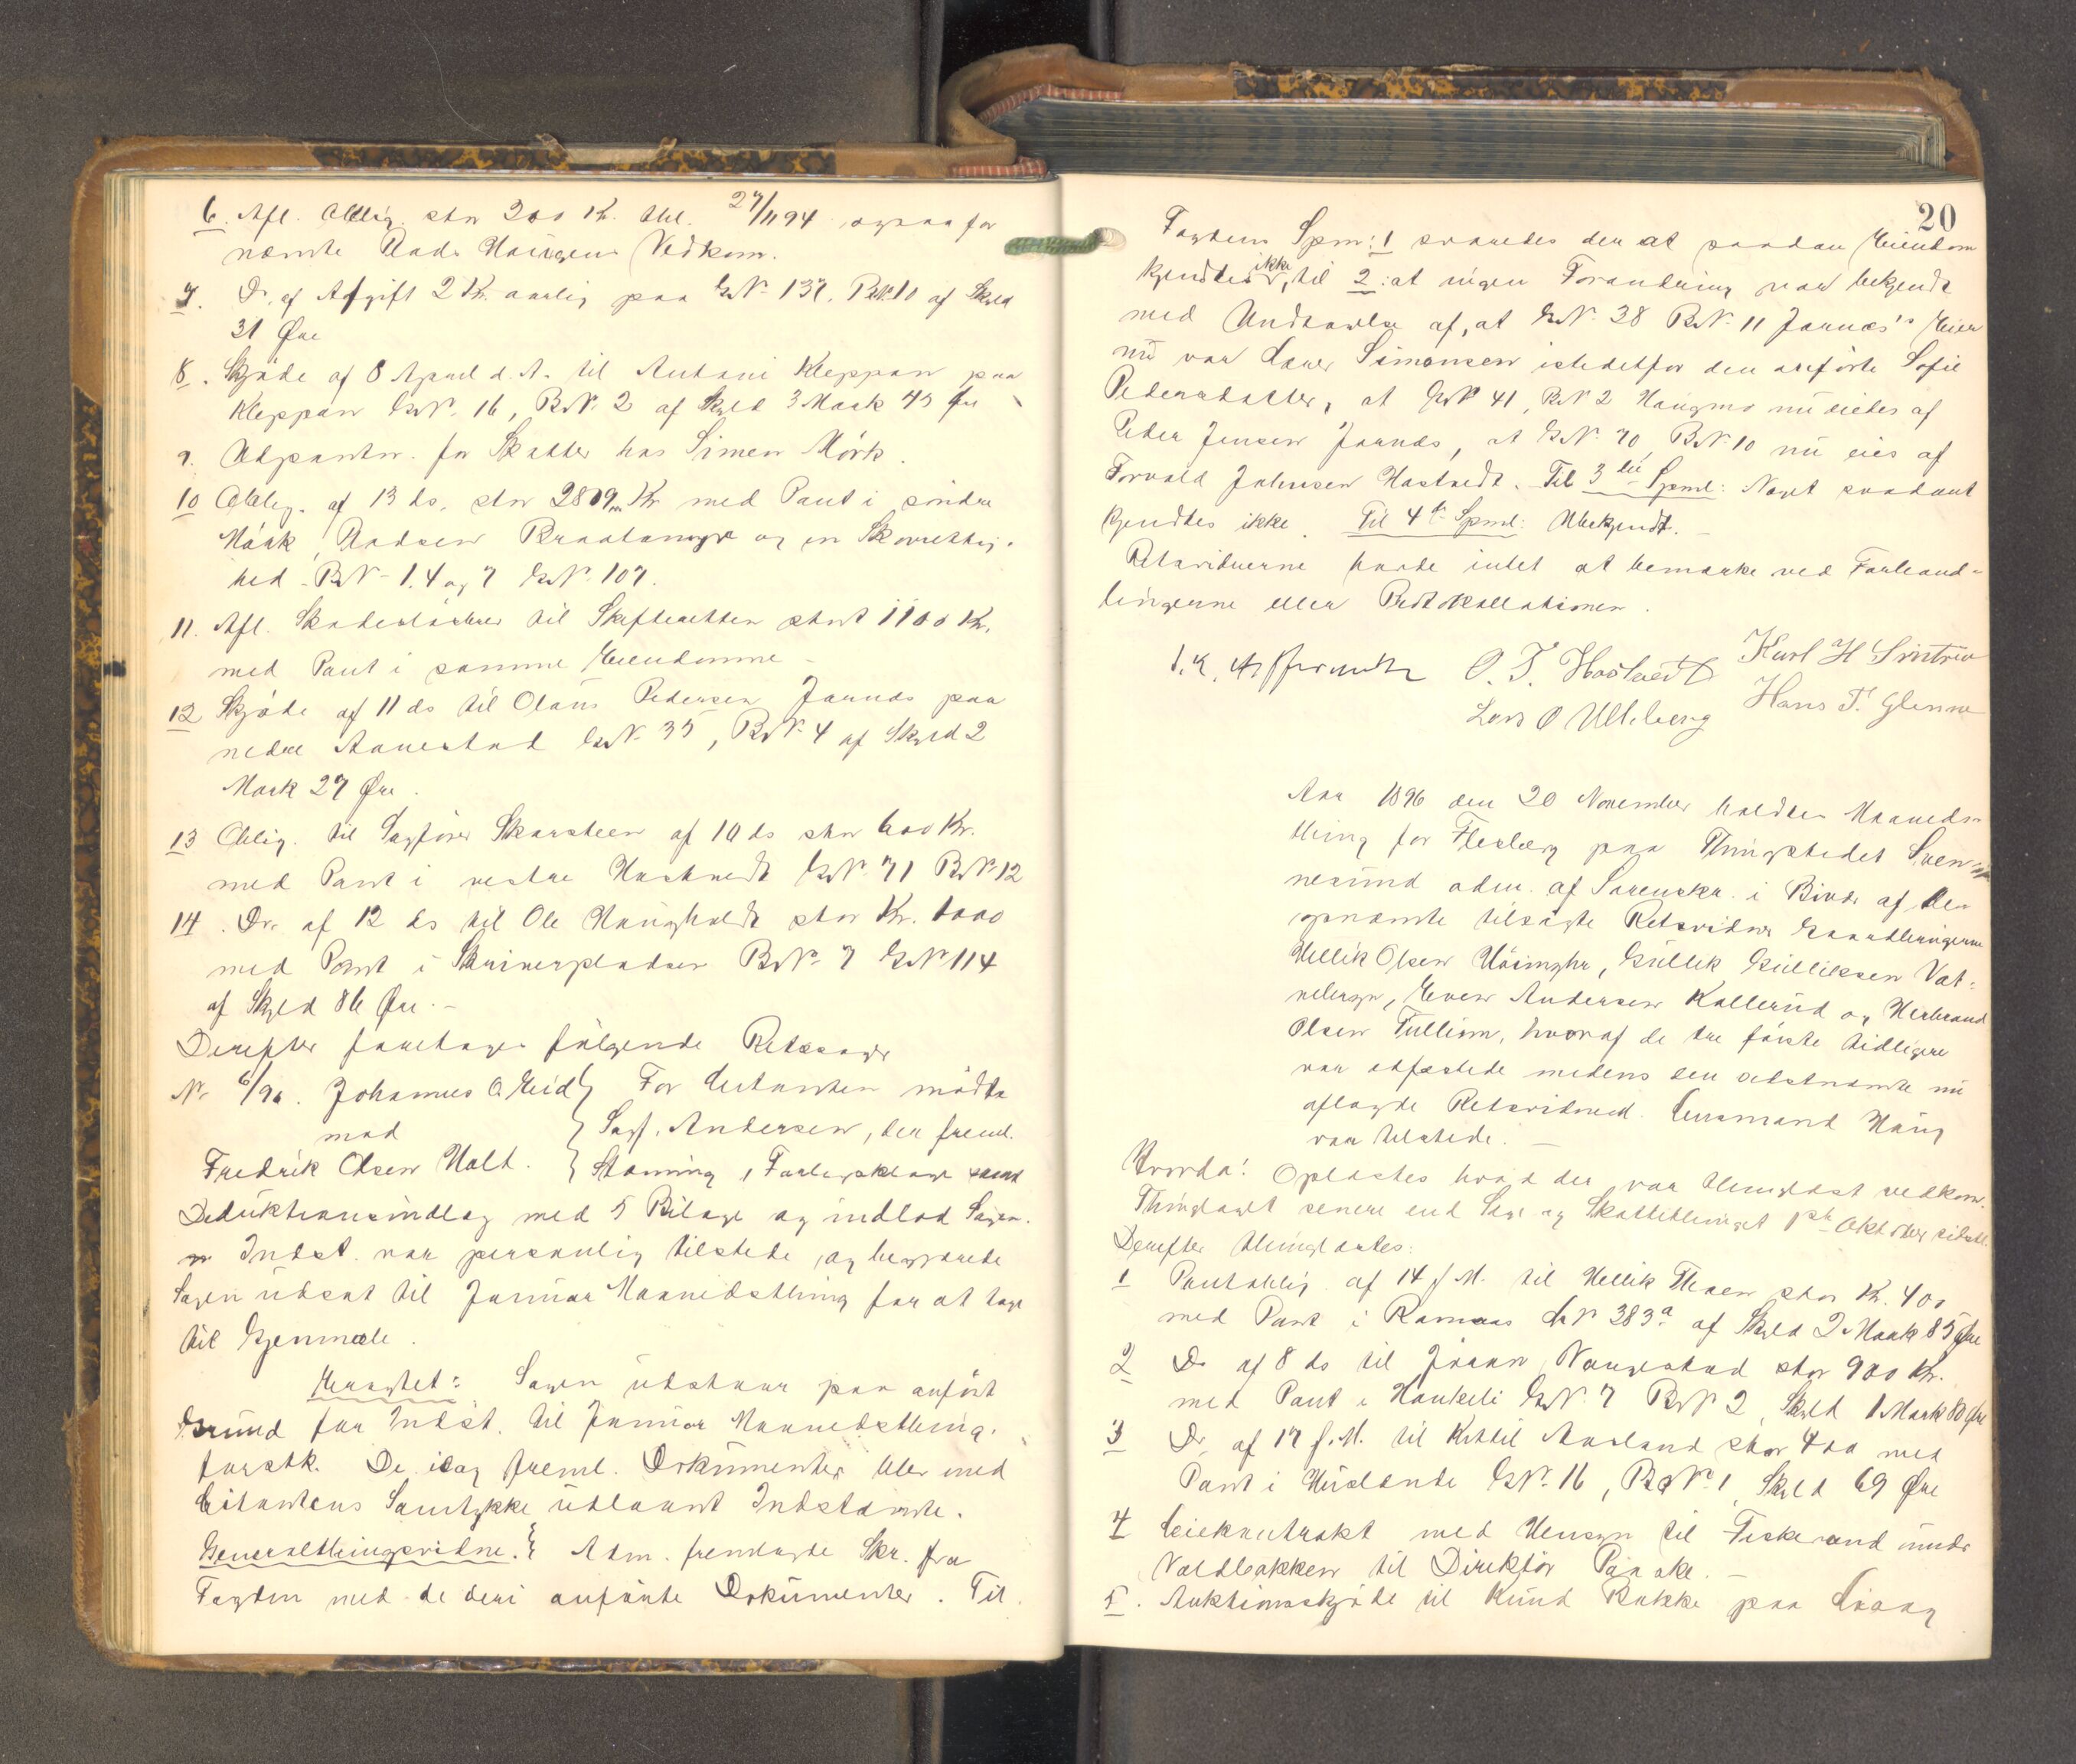 6. Afl. Oblig. stor 200 Kr. thl. 27/11 94, ogsaa for
nævnte Aads Haugens Vedkom.
7. Do. af Afgift 2 Kr. aarlig paa GNo 137, BNo 10 af Skyld
31 Øre
8. Skjøde af 8 April d. A. til Antoni Kleppan paa
Kleppan GNo. 16, BNo. 2 af Skyld 3 Mark 45 Øre
9. Udpantn. for Skatter hos Simen Mörk.
10 Oblig. af 13 ds. stor 2809 Kr med Pant i søndre
Mörk, Aadsen Braatanogr og en Skovrettig-
hed BNo 1. 4 og 7 GNo. 107.
11. Afl. Skadesløsbrev til Skifteretten stort 1100 Kr.
med Pant i samme Eiendomme
12 Skjøde af 11 ds til Olaus Pedersen Jarnæs paa
nedre Aanestad GNo. 35, BNo. 4 af Skyld 2
Mark 27 Øre.
13 Oblig. til Sagfører Skarsteen af 10 ds stor 600 Kr.
med Pant i vestre Hostvedt GNo 71 BNo 12
14. Do. af 12 ds til Ole Haugholdt stor Kr. 1000
med Pant i Skriverpladsen BNo. 7 GNo 114
af Skyld 86 Øre. –
Derefter foretages følgende Retssager
No 6/96. Johannes O. Eid } For Citanten mødte
mod } Sagf. Andersen, der freml.
Fredrik Olsen Holt. } Stævning, Forligsklage samt
Deduktionsindlæg med 5 Bilage og indlod Sagen.
Indst. var personlig tilstede, og begjærede
Sagen udsat til Januar Maanedsthing for at tage
til Gjenmæle.
Eragtet: Sagen udstaar paa anført
Grund for Indst. til Januar Maanedsthing.
førstk. De idag freml. Dokumenter blev med
Citantens Samtykke udlaant Indstævnte.
Generalthingsvidne. } Adm. fremlagde Skr. fra
Fogden med de deri anførte Dokumenter. Til
20
Fogdens Spm: 1 svaredes der at saadan Eiendom
kjendtes ikke, til 2: at ingen Forandring var bekjendt
med Undtagelse af, at GNo. 38 BNo. 11 Jarnæs's Eier
nu var Lauer Simonsen istedetfor den anførte Sofie
Pedersdatter, at GNo 41, BNo 2 Haugmo nu eiedes af
Peder Jensen Jarnæs, at GNo. 70 BNo. 10 nu eies af
Torvald Johnsen Hostvedt. Til 3die Spml: Noget saadant
kjendtes ikke. Til 4de Spml: Ubekjendt. –
Retsvidnerne havde intet at bemærke ved Forhand-
lingerne eller Protokollationen.
O. T. Hostvedt Karl H
Lars O Ulleberg Hans T. Glenne
Aar 1896 den 20 November holdtes Maaneds-
thing for Flesberg paa Thingstedet Sven-
nesund adm. af Sorenskr. i Bivær af de
opnævnte tilsagte Retsvidner Gaardbrugerne
Hellik Olsen, Gullik Gulliksen Vat-
nebryn, Even Andersen Kollerud og Herbrand
Olsen Tullium, hvoraf de tre første tidligere
var edfæstede medens den sidstnævnte nu
aflagde Retsvidneed. Lensmand Haug
var tilstede. –
Hvorda: Oplæstes hvad der var thinglæst vedkom.
Thinglaget senere end Sage og Skattethinget 1ste Oktober sidstl.
Derefter thinglæstes:
1 Pantoblig. af 14 f. M. til Hellik Thoen stor Kr. 400
med Pant i Ramaas LNo 383a af Skyld 2 Mark 85 Øre
2 Do af 8 ds til Jöran Vangestad stor 900 Kr.
med Pant i Haukeli GNo. 7 BNo 2, Skyld 1 Mark 80 Øre
3 Do. af 17 f. M. til Kittil Aasland stor 400 med
Pant i Huslende GNo. 16, BNo. 1 Skyld 69 Øre
4 Leiekontrakt med Hensyn til Fiskevand under
Voldbakken til Direktør Paaske. –
5. Auktionsskjøde til Knud Bakke paa Liaag